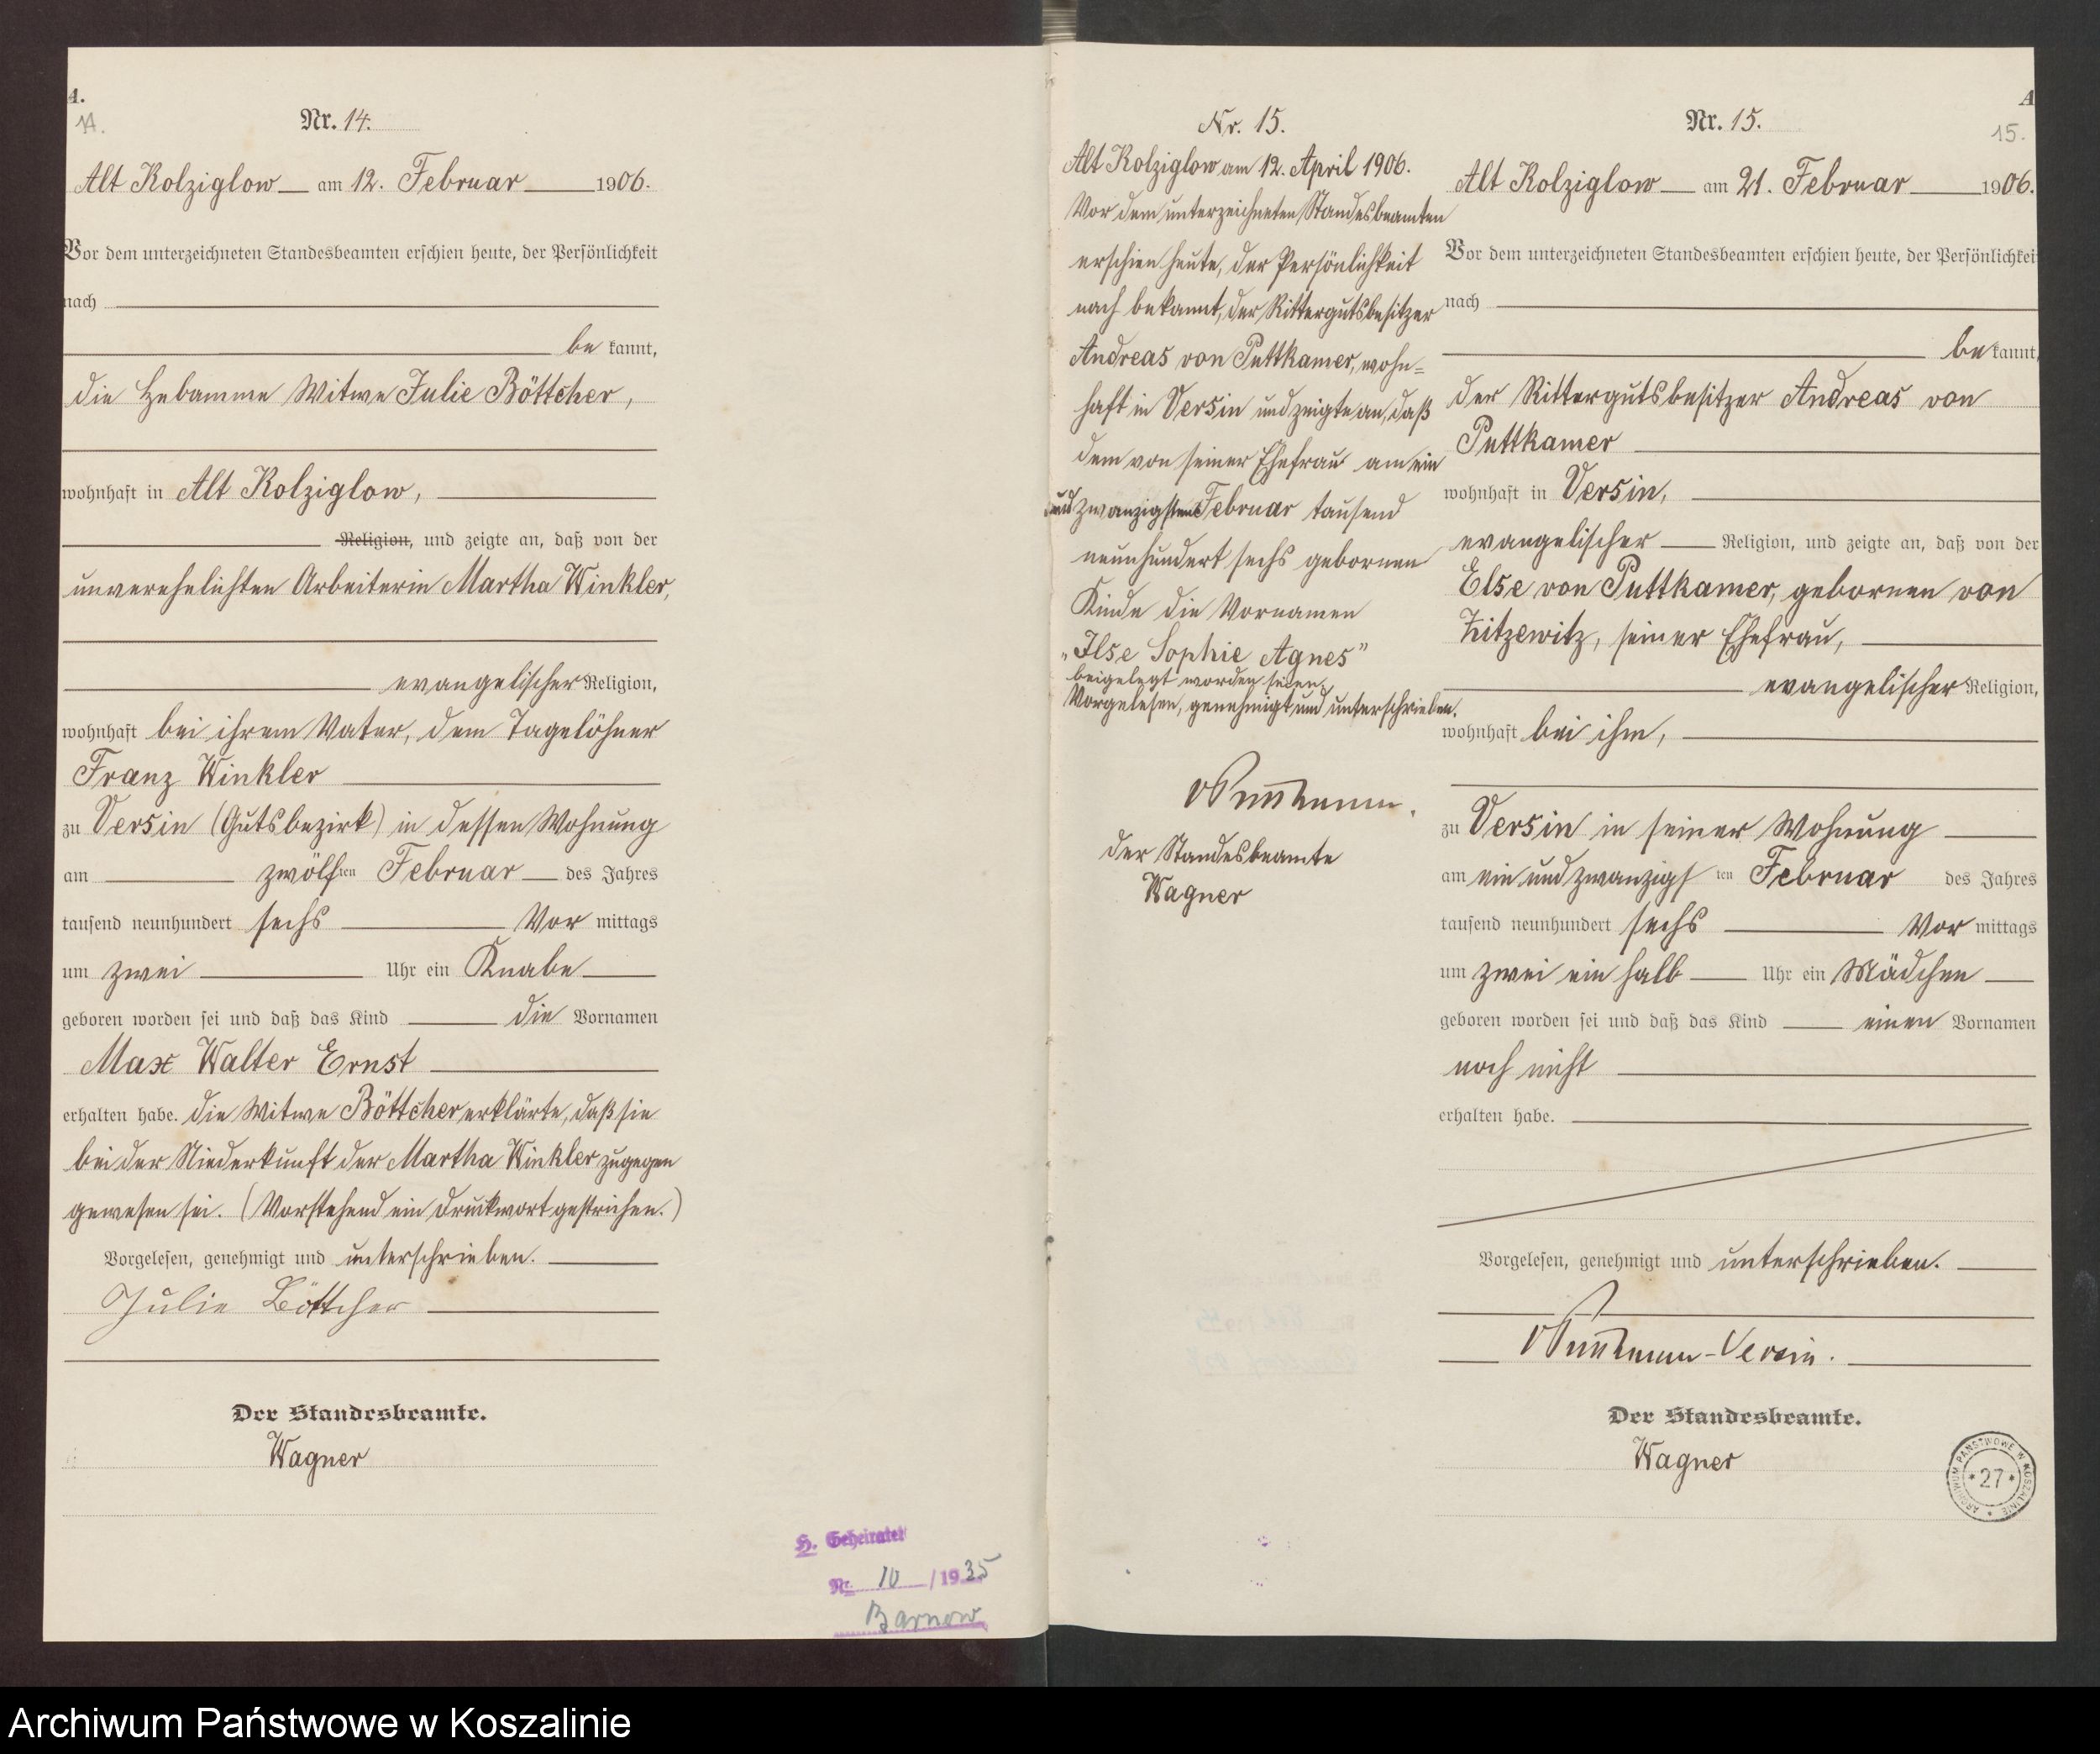 A.
14.
Nr. 14.
Alt Kolziglow am 12. Februar 1906.
Vor dem unterzeichneten Standesbeamten erschien heute, der Persönlichkeit
nach
be kannt,
die Hebamme Witwe Julie Böttcher,
wohnhaft in Alt Kolziglow,
Religion, und zeigte an, daß von der
unverehelichten Arbeiterin Martha Winkler,
evangelischer Religion,
wohnhaft bei ihrem Vater, dem Tagelöhner
Franz Winkler
zu Versin (Gutsbezirk) in dessen Wohnung
am zwölften Februar des Jahres
tausend neunhundert sechs Vor mittags
um zwei Uhr ein Knabe
geboren worden sei und daß das Kind die Vornamen
Max Walter Ernst
erhalten habe. Die Witwe Böttcher erklärte, daß sie
bei der Niederkunft der Martha Winkler zugegen
gewesen sei. (Vorstehend ein Druckwort gestrichen.)
Vorgelesen, genehmigt und unterschrieben.
Julie Böttcher
Der Standesbeamte.
Wagner
H. Geheiratet
Nr. 10 / 1935
Barnow
Nr. 15.
Alt Kolziglow am 12. April 1906.
Vor dem unterzeichneten Standesbeamten
erschien heute, der Persönlichkeit
nach bekannt, der Rittergutsbesitzer
Andreas von Puttkamer, wohn=
haft in Versin und zeigte an, daß
dem von seiner Ehefrau am ein
und zwanzigsten Februar tausend
neunhundert sechs gebornen
Kinde die Vornamen
„Ilse Sophie Agnes"
beigelegt worden seien.
Vorgelesen, genehmigt und unterschrieben.
v Puttkamer.
Der Standesbeamte
Wagner
A
15.
Nr. 15.
Alt Kolziglow am 21. Februar 1906.
Vor dem unterzeichneten Standesbeamten erschien heute, der Persönlichkei
nach
be kannt,
der Rittergutsbesitzer Andreas von
Puttkamer
wohnhaft in Versin,
evangelischer Religion, und zeigte an, daß von der
Else von Puttkamer, gebornen von
Zitzewitz, seiner Ehefrau,
evangelischer Religion,
wohnhaft bei ihm,
zu Versin in seiner Wohnung
am ein und zwanzigsten Februar des Jahres
tausend neunhundert sechs Vor mittags
um zwei ein halb Uhr ein Mädchen
geboren worden sei und daß das Kind einen Vornamen
noch nicht
erhalten habe.
Vorgelesen, genehmigt und unterschrieben.
v Puttkamer-Versin.
Der Standesbeamte.
Wagner
ARCHIWUM PAŃSTWOWE W KOSZALINIE
*27*
Archiwum Państwowe w Koszalinie